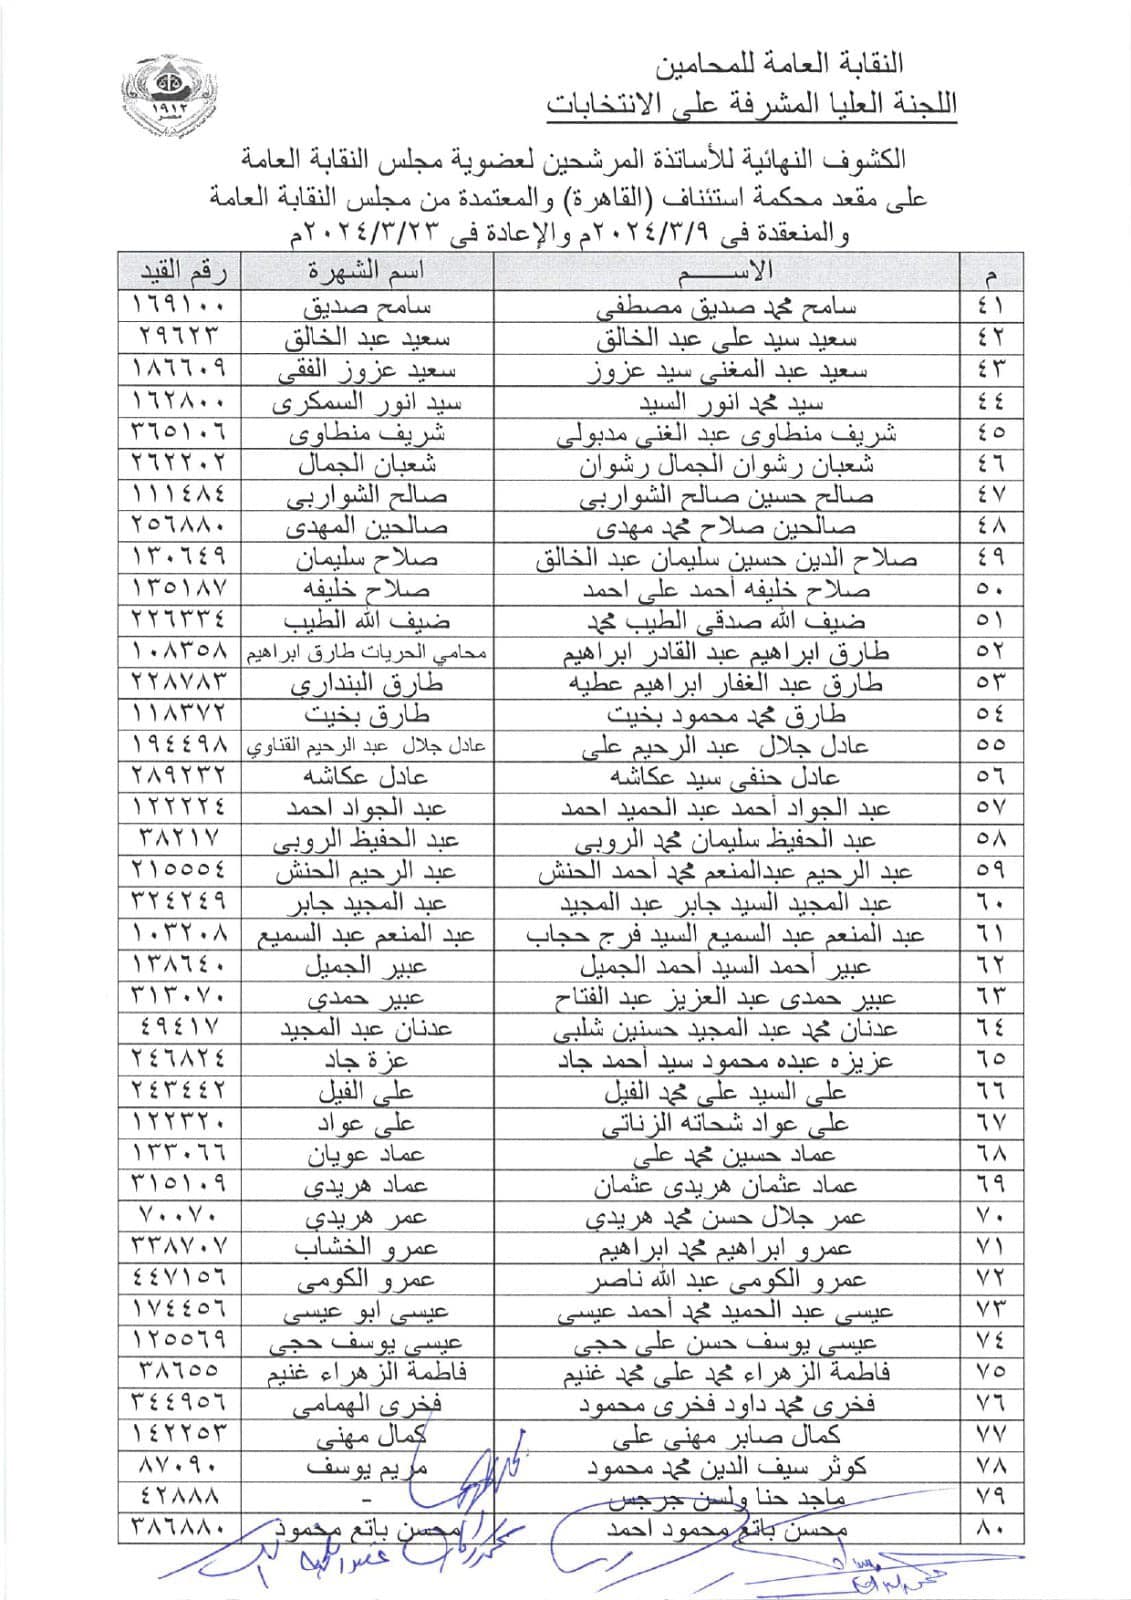 ١٩١٢
مصر
النقابة العامة للمحامين
اللجنة العليا المشرفة على الانتخابات
الكشوف النهائية للأساتذة المرشحين لعضوية مجلس النقابة العامة
على مقعد محكمة استئناف (القاهرة) والمعتمدة من مجلس النقابة العامة
والمنعقدة فى ٢٠٢٤/٣/٩م والإعادة فى ٢٠٢٤/٣/٢٣م
م الاســـــم اسم الشهرة رقم القيد
٤١ سامح محمد صديق مصطفى سامح صديق ١٦٩١٠٠
٤٢ سعيد سيد على عبد الخالق سعيد عبد الخالق ٢٩٦٢٣
٤٣ سعيد عبد المغنى سيد عزوز سعيد عزوز الفقى ١٨٦٦٠٩
٤٤ سيد محمد انور السيد سيد انور السمكرى ١٦٢٨٠٠
٤٥ شريف منطاوى عبد الغنى مدبولى شريف منطاوى ٣٦٥١٠٦
٤٦ شعبان رشوان الجمال رشوان شعبان الجمال ٢٦٢٢٠٢
٤٧ صالح حسين صالح الشواربى صالح الشواربى ١١١٤٨٤
٤٨ صالحين صلاح محمد مهدى صالحين المهدى ٢٥٦٨٨٠
٤٩ صلاح الدين حسين سليمان عبد الخالق صلاح سليمان ١٣٠٦٤٩
٥٠ صلاح خليفه أحمد على احمد صلاح خليفه ١٣٥١٨٧
٥١ ضيف الله صدقى الطيب محمد ضيف الله الطيب ٢٢٦٣٣٤
٥٢ طارق ابراهيم عبد القادر ابراهيم محامي الحريات طارق ابراهيم ١٠٨٣٥٨
٥٣ طارق عبد الغفار ابراهيم عطيه طارق البنداري ٢٢٨٧٨٣
٥٤ طارق محمد محمود بخيت طارق بخيت ١١٨٣٧٢
٥٥ عادل جلال عبد الرحيم على عادل جلال عبد الرحيم القناوي ١٩٤٤٩٨
٥٦ عادل حنفى سيد عكاشه عادل عكاشه ٢٨٩٢٣٢
٥٧ عبد الجواد أحمد عبد الحميد احمد عبد الجواد احمد ١٢٢٢٢٤
٥٨ عبد الحفيظ سليمان محمد الروبى عبد الحفيظ الروبى ٣٨٢١٧
٥٩ عبد الرحيم عبدالمنعم محمد أحمد الحنش عبد الرحيم الحنش ٢١٥٥٥٤
٦٠ عبد المجيد السيد جابر عبد المجيد عبد المجيد جابر ٣٢٤٢٤٩
٦١ عبد المنعم عبد السميع السيد فرج حجاب عبد المنعم عبد السميع ١٠٣٢٠٨
٦٢ عبير أحمد السيد أحمد الجميل عبير الجميل ١٣٨٦٤٠
٦٣ عبير حمدى عبد العزيز عبد الفتاح عبير حمدي ٣١٣٠٧٠
٦٤ عدنان محمد عبد المجيد حسنين شلبى عدنان عبد المجيد ٤٩٤١٧
٦٥ عزيزه عبده محمود سيد أحمد جاد عزة جاد ٢٤٦٨٢٤
٦٦ على السيد على محمد الفيل على الفيل ٢٤٣٤٤٢
٦٧ على عواد شحاته الزناتى على عواد ١٢٢٣٢٠
٦٨ عماد حسين محمد على عماد عويان ١٣٣٠٦٦
٦٩ عماد عثمان هريدى عثمان عماد هريدي ٣١٥١٠٩
٧٠ عمر جلال حسن محمد هريدي عمر هريدي ٧٠٠٧٠
٧١ عمرو ابراهيم محمد ابراهيم عمرو الخشاب ٣٣٨٧٠٧
٧٢ عمرو الكومى عبد الله ناصر عمرو الكومى ٤٤٧١٥٦
٧٣ عيسى عبد الحميد محمد أحمد عيسى عيسى ابو عيسى ١٧٤٤٥٦
٧٤ عيسى يوسف حسن على حجى عيسى يوسف حجى ١٢٥٥٦٩
٧٥ فاطمة الزهراء محمد على محمد غنيم فاطمة الزهراء غنيم ٣٨٦٥٥
٧٦ فخرى محمد داود فخرى محمود فخرى الهمامى ٣٤٤٩٥٦
٧٧ كمال صابر مهنى على كمال مهنى ١٤٢٢٥٣
٧٨ كوثر سيف الدين محمد محمود مريم يوسف ٨٧٠٩٠
٧٩ ماجد حنا ولسن جرجس - ٤٢٨٨٨
٨٠ محسن باتع محمود احمد محسن باتع محمود ٣٨٦٨٨٠